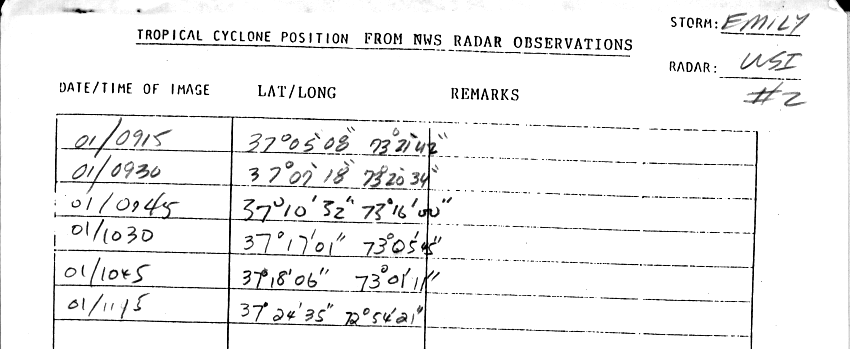 STORM: EMILY
TROPICAL CYCLONE POSITION FROM NWS RADAR OBSERVATIONS
RADAR: WSI
#2
DATE/TIME OF IMAGE LAT/LONG REMARKS
01/0915 37°05'08" 73°21'42"
01/0930 37°07'18" 73°20'34"
01/0945 37°10'32" 73°16'00"
01/1030 37°17'01" 73°05'45"
01/1045 37°18'06" 73°01'11"
01/1115 37°24'35" 72°54'21"